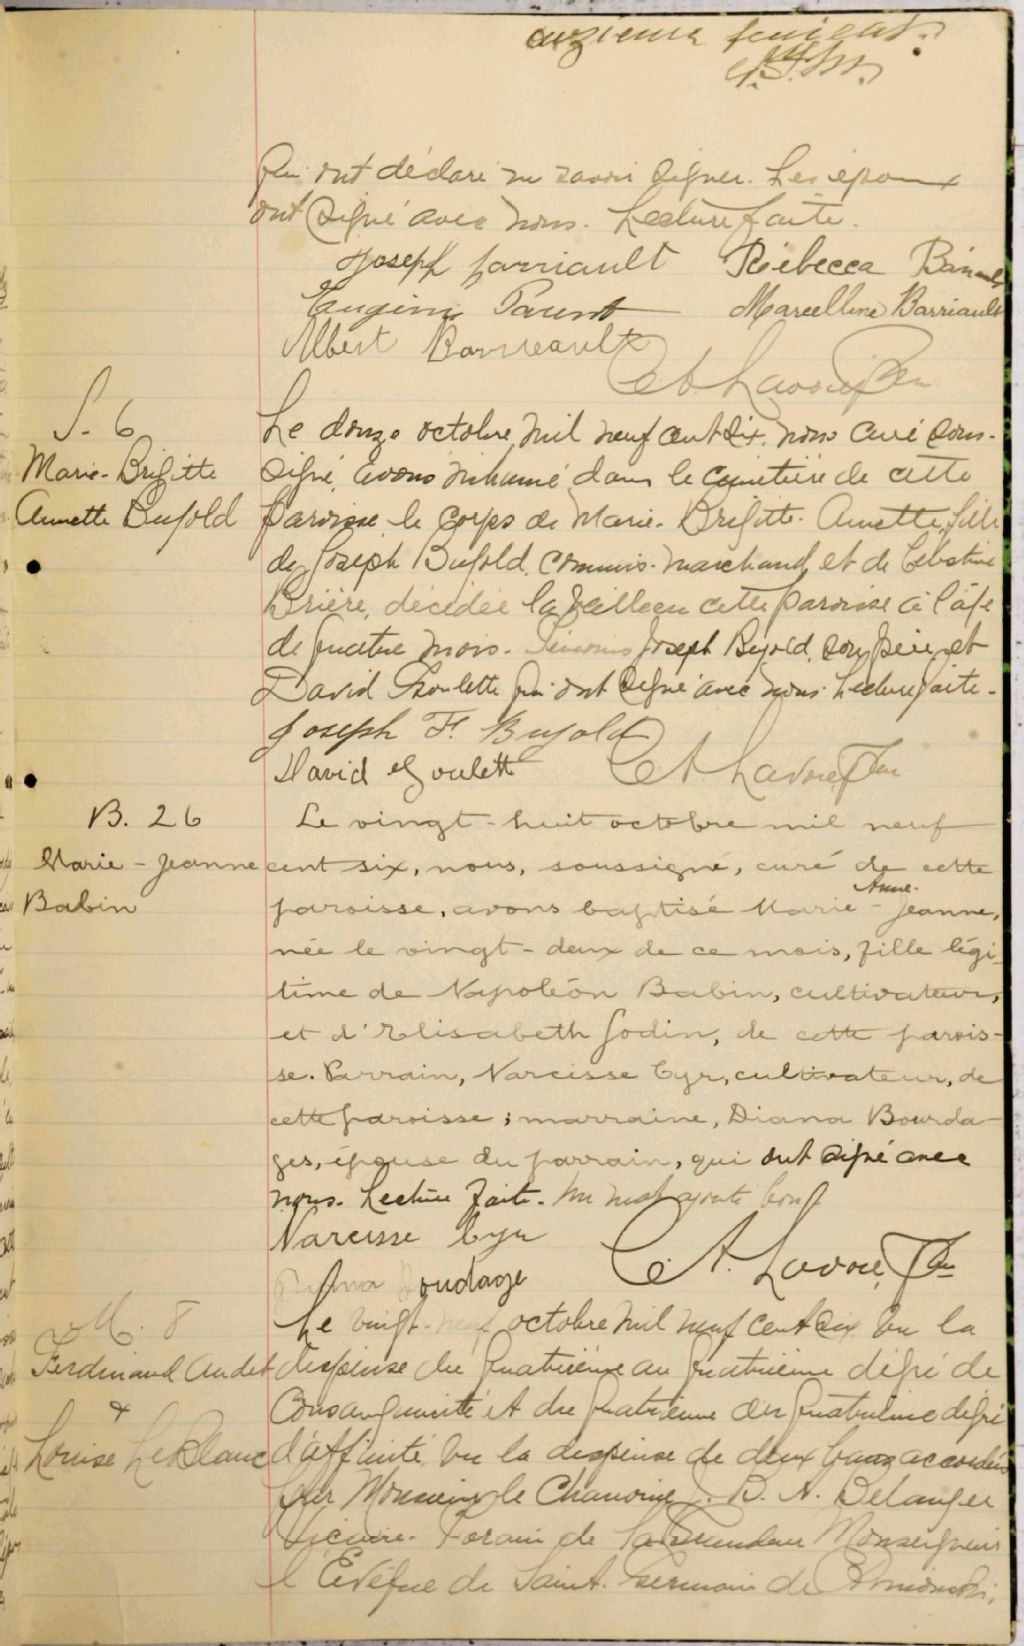 onzième feuillet.
qui ont déclaré ne savoir signer. Les époux
ont signé avec nous. Lecture faite.
Joseph Barriault Rébecca
Eugénie Parent Marcelline Barriault
Albert Barrieault
C. A. Lavoie Ptre
S. 6
Marie-Brigitte
Annette Bujold
Le douze octobre mil neuf cent six, nous curé sous-
signé, avons inhumé dans le cimetière de cette
paroisse le corps de Marie-Brigitte-Annette, fille
de Joseph Bujold, commis-marchand, et de Célestine
Brière, décédée la veille en cette paroisse à l'âge
de quatre mois. Témoins Joseph Bujold, son père, et
David Goulette qui ont signé avec nous. Lecture faite.
Joseph F. Bujold
David Goulett C. A. Lavoie Ptre
B. 26
Marie-Jeanne
Babin
Le vingt-huit octobre mil neuf
cent six, nous, soussigné, curé de cette
Anne-
paroisse, avons baptisé Marie-Jeanne,
née le vingt-deux de ce mois, fille légi-
time de Napoléon Babin, cultivateur,
et d'Elisabeth Godin, de cette parois-
se. Parrain, Narcisse Cyr, cultivateur, de
cette paroisse; marraine, Diana Bourda-
ges, épouse du parrain, qui ont signé avec
nous. Lecture faite. Un mot ajouté bon
Narcisse Cyr
C. A. Lavoie, Ptre
M. 8
Ferdinand Audet
&
Louise LeBlanc
Le vingt-neuf octobre mil neuf cent six vu la
dispense du quatrième au quatrième dégré de
Consanguinité et du quatrième au quatrième dégré
d'affinité, vu la dispense de deux bans accordée
par Monsieur le Chanoine J. B. A. Bélanger
Vicaire-Forain de Sa Grandeur Monseigneur
l'Evêque de Saint-Germain de Rimouski,